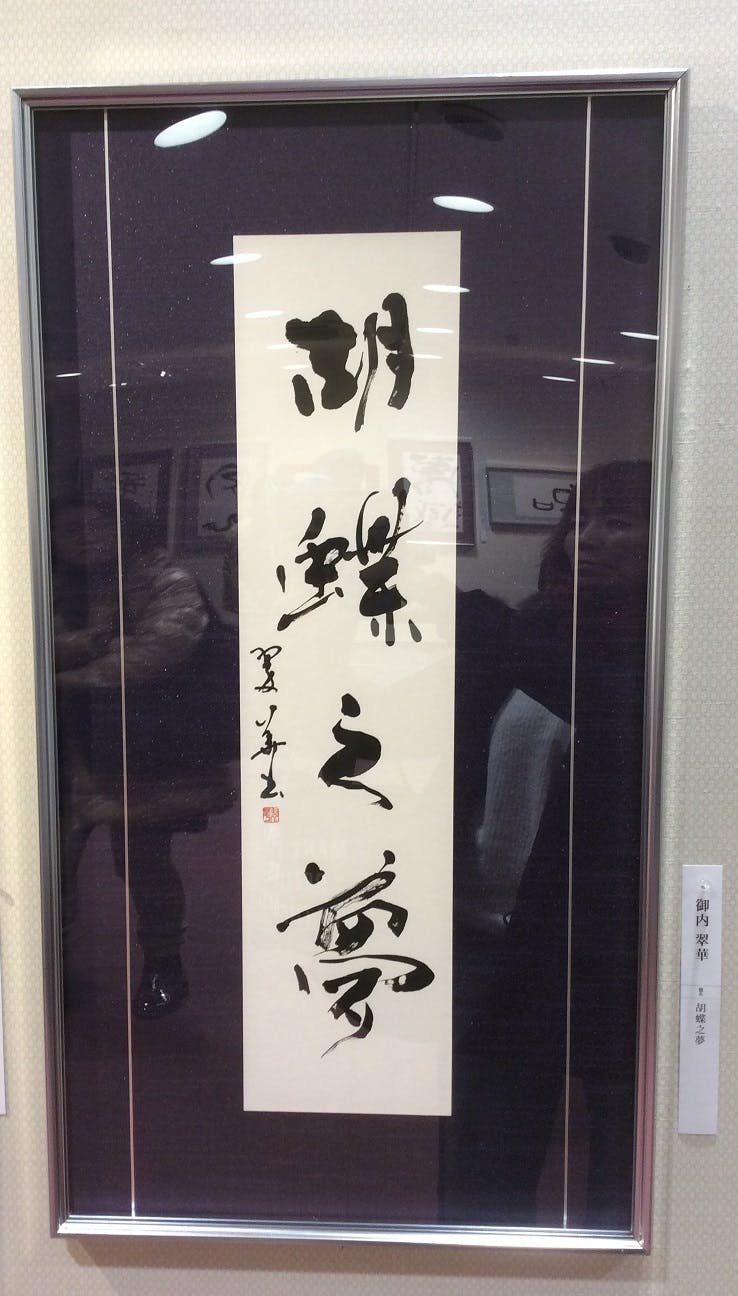 胡蝶之夢
翠華書
御内 翠華
胡蝶之夢